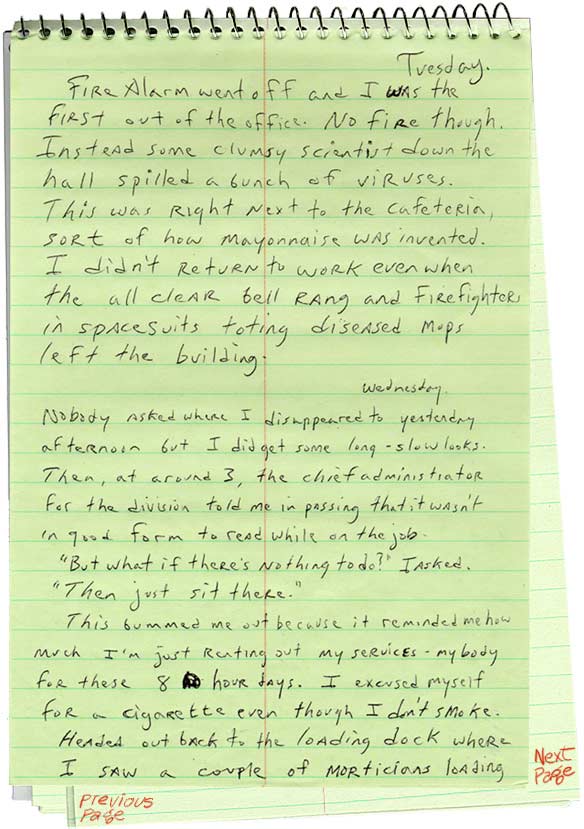 Tuesday.
Fire Alarm went off and I was the
first out of the office. No fire though.
Instead some clumsy scientist down the
hall spilled a bunch of viruses.
This was right next to the cafeteria,
sort of how mayonnaise was invented.
I didn't return to work even when
the all clear bell rang and firefighters
in spacesuits toting diseased mops
left the building.
Wednesday.
Nobody asked where I disappeared to yesterday
afternoon but I did get some long-slow looks.
Then, at around 3, the chief administrator
for the division told me in passing that it wasn't
in good form to read while on the job.
"But what if there's nothing to do?" I asked.
"Then just sit there."
This bummed me out because it reminded me how
much I'm just renting out my services - my body
for these 8 hour days. I excused myself
for a cigarette even though I don't smoke.
Headed out back to the loading dock where
I saw a couple of morticians loading
Next
Page
Previous
Page